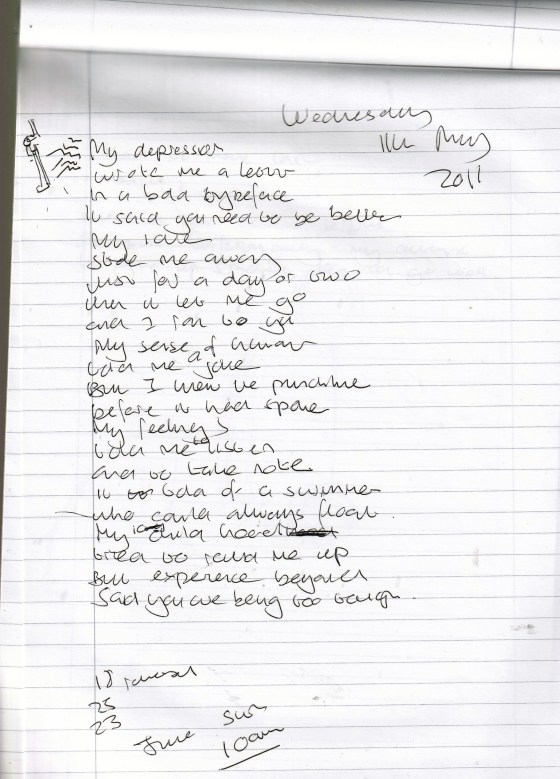 Wednesday
11th May
2011
My depression
wrote me a letter
in a bold typeface
it said you need to be better
My
stole me away
just for a day or two
then it let me go
and I ran to you
My sense of humour
told me a joke
But I knew the punchline
before it had spoke
My feelings
told me to listen
and to take note
it told of a swimmer
who could always float.
My childhood
tried to me up
But experience beyond
Said you are being too tough.
18
25
23
June Sun
10am